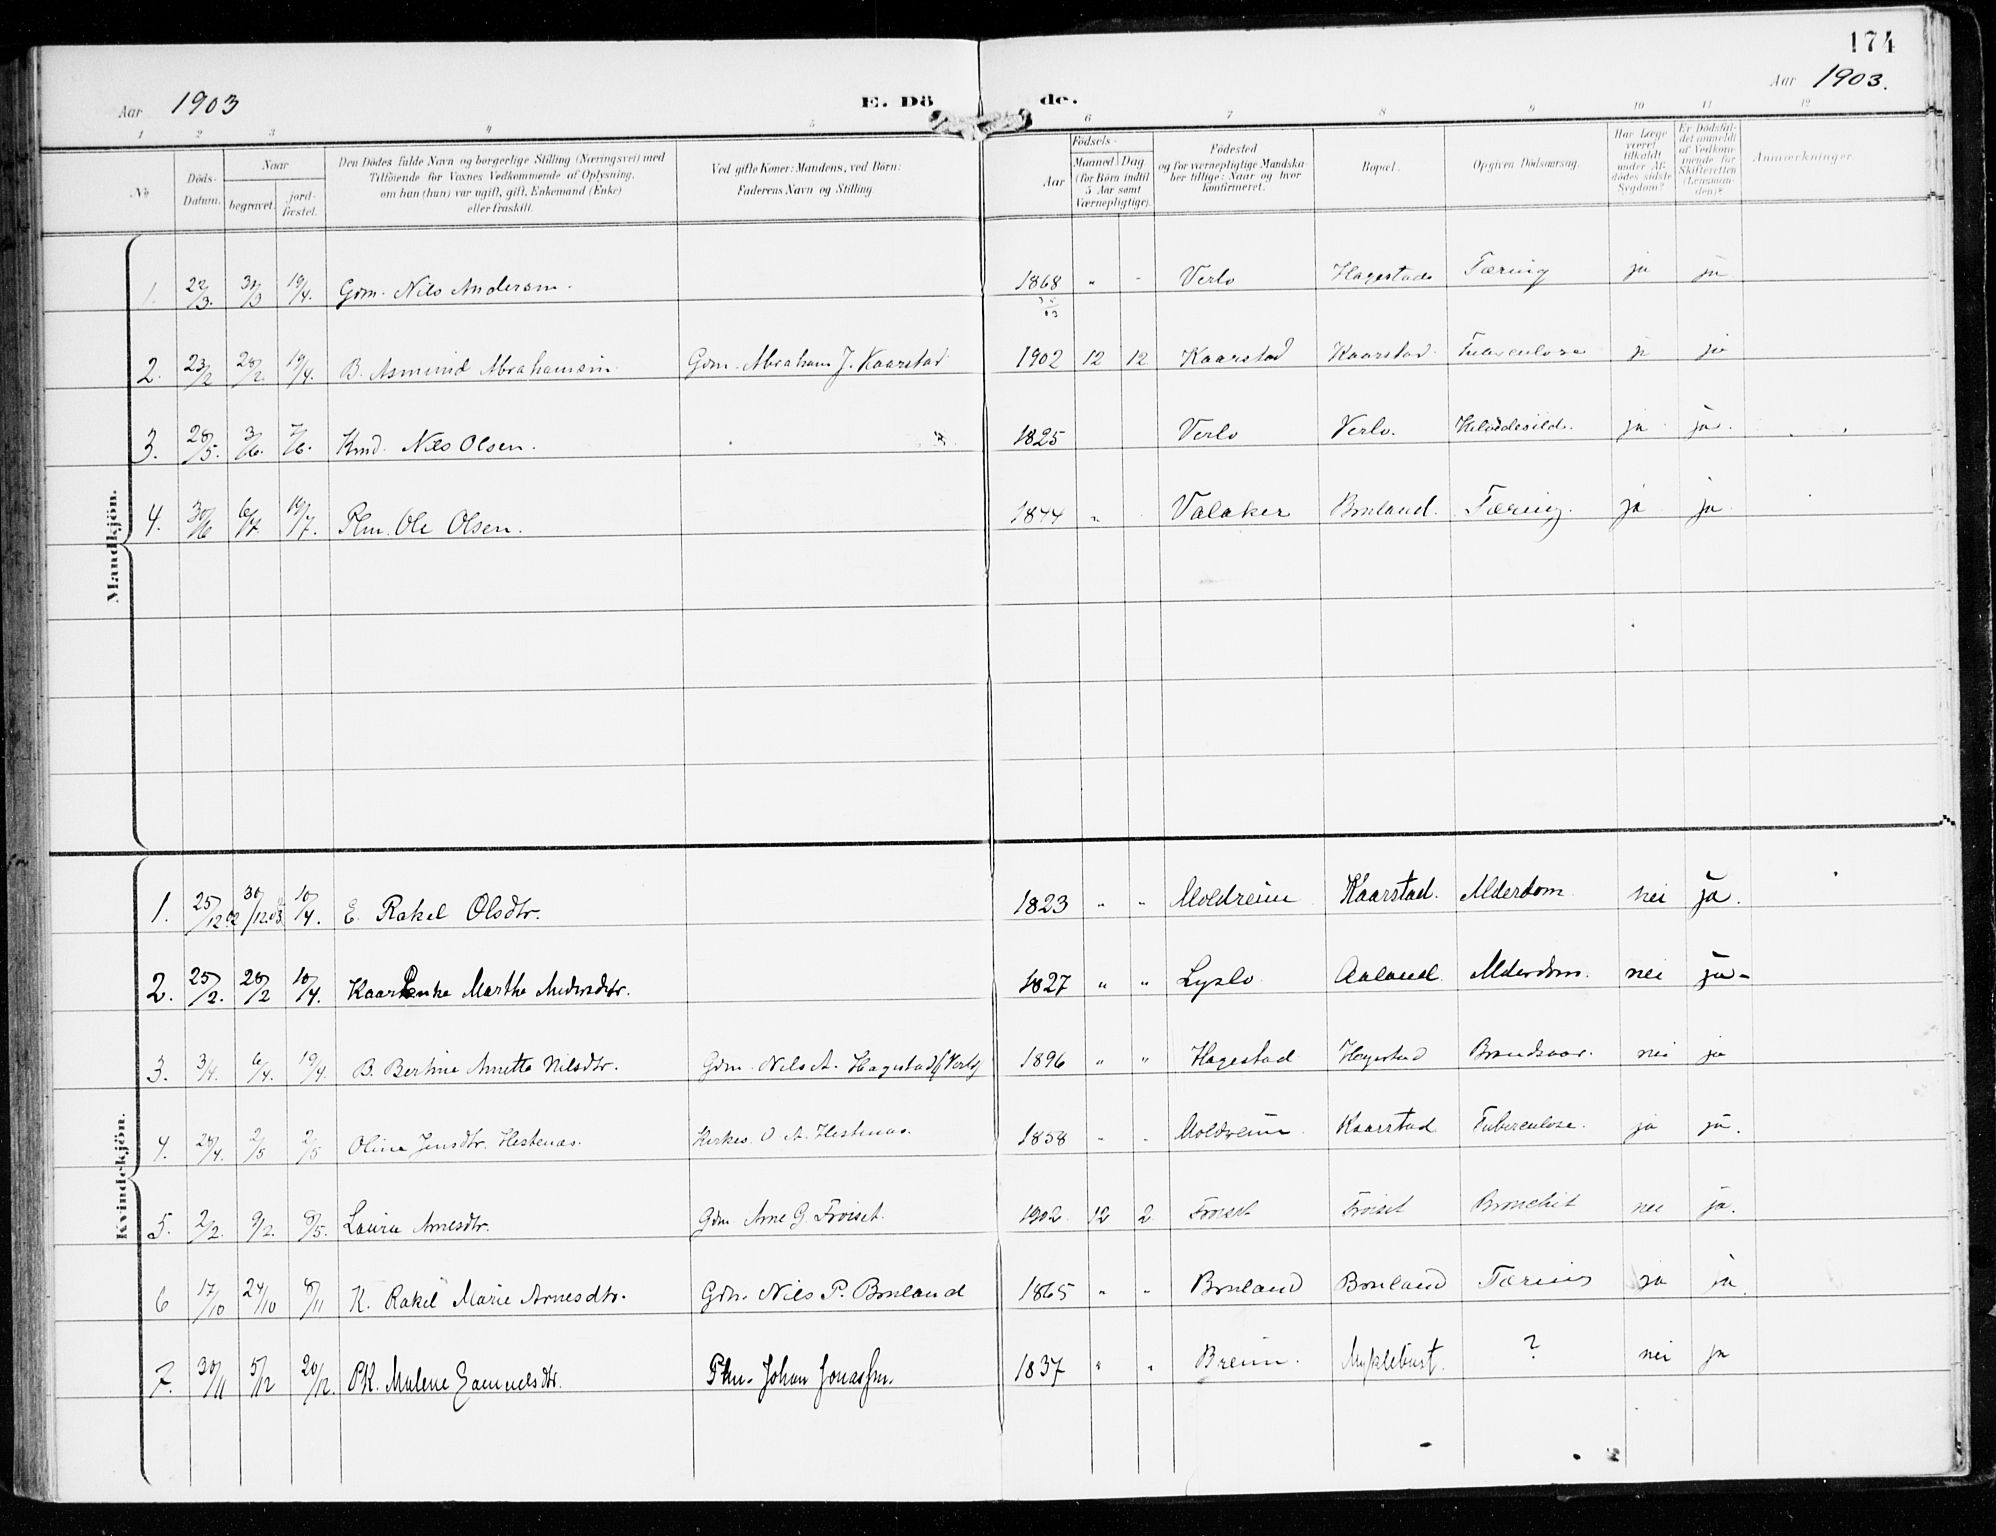 174
Aar 1903 E. Dö de. Aar 1903.
1 2 3 4 5 6 7 8 9 10 11 12
№
Døds-Datum.
Naar
begravet.
jordfæstet.
Den Dödes fulde Navn og borgerlige Stilling (Næringsvei) med
Tilföiende for Voxnes Vedkommende af Oplysning,
om han (hun) var ugift, gift, Enkemand (Enke)
eller fraskilt.
Ved gifte Koner: Mandens, ved Börn:
Faderens Navn og Stilling.
Födsels-
Aar
Maaned Dag
(for Börn indtil
5 Aar samt
Værnepligtige).
Födested
og for værnepligtige Mandskaber tillige: Naar og hvor
konfirmeret.
Bopæl.
Opgiven Dödsaarsag.
Har Læge
været
tilkaldt
under Afdödes sidste
Sygdom?
Er Dödsfaldet anmeldt
af Vedkommende for
Skifteretten
(Lensmanden)?
Anmærkninger.
Mandkjön.
1. 22/3. 30/3 19/4. Gdm. Nils Andersen. 1868 " - Verlo Hagestad Tæring ja ja
2. 23/2 28/2. 19/4. B. Asmund Abrahamsen. Gdm. Abraham J. Kaarstad 1902 12 12 Kaarstad Kaarstad. Tuberculose ja ja
3. 28/5. 3/6. 7/6. Kmd. Nils Olsen. 1825 Verlo Verlo. ja ja.
4. 30/6 6/7. 19/7. Plm. Ole Olsen. 1844 " Valaker Bruland. Tæring. ja ja
Kvindekjön.
1. 25/12 02 30/12 03. 10/4. E. Rakel Olsdtr. 1823 " " Moldreim Kaarstad. Alderdom nei ja.
2. 25/2. 28/2 10/4. Marthe Andersdtr. 1827 " " Lyslo Aaland. Alderdom. nei ja-
3. 3/4. 6/4. 19/4. B. Bertine Anette Nilsdtr. Gdm. Nils A. Hagestad (Verlo) 1896 " " Hagestad Hagestad Brandsaar. nei ja
4. 28/4. 2/5 2/5 Oline Jensdtr. Hestenæs. Kirkes. O. A. Hestenæs. 1858 " " Moldreim Kaarstad Tuberculose. ja ja.
5. 2/2. 9/2. 8/5. Laura Arnesdtr. Gdm. Arne G. Froiset. 1902 12 2 Froiset Froiset Bronchit nei ja.
6 17/10 24/10 8/11 K. Rakel Marie Arnesdtr. Gdm. Nils P. Bruland 1865 " " Bruland Bruland Tæring ja ja.
7. 30/11 5/12 20/12. PK. Malene Samuelsdtr. Plm. Johan Jonassen. 1837 " " Breim. Myklebust. ? nei ja